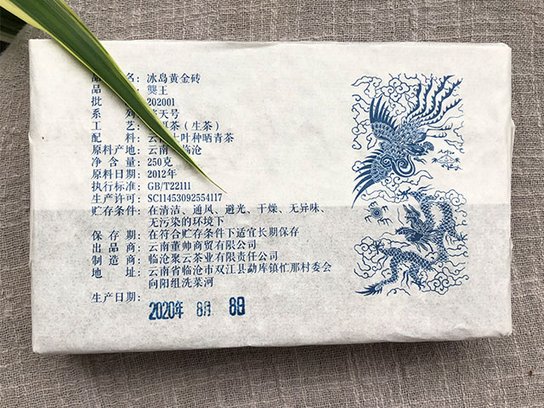 名：冰岛黄金砖
品 ：龑王
批 202001
系 天号
工 茶（生茶）
配 料：云 大叶种晒青茶
原料产地：云南 临沧
净 含 量：250克
原料日期：2012年
执行标准：GB/T22111
生产许可：SC11453092554117
贮存条件：在清洁、通风、避光、干燥、无异味、
无污染的环境下
保 存 期：在符合贮存条件下适宜长期保存
出 品 商：云南董帅商贸有限公司
制 造 商：临沧聚云茶业有限责任公司
地 址：云南省临沧市双江县勐库镇忙那村委会
向阳组洗菜河
生产日期：
2020年 8月 8日